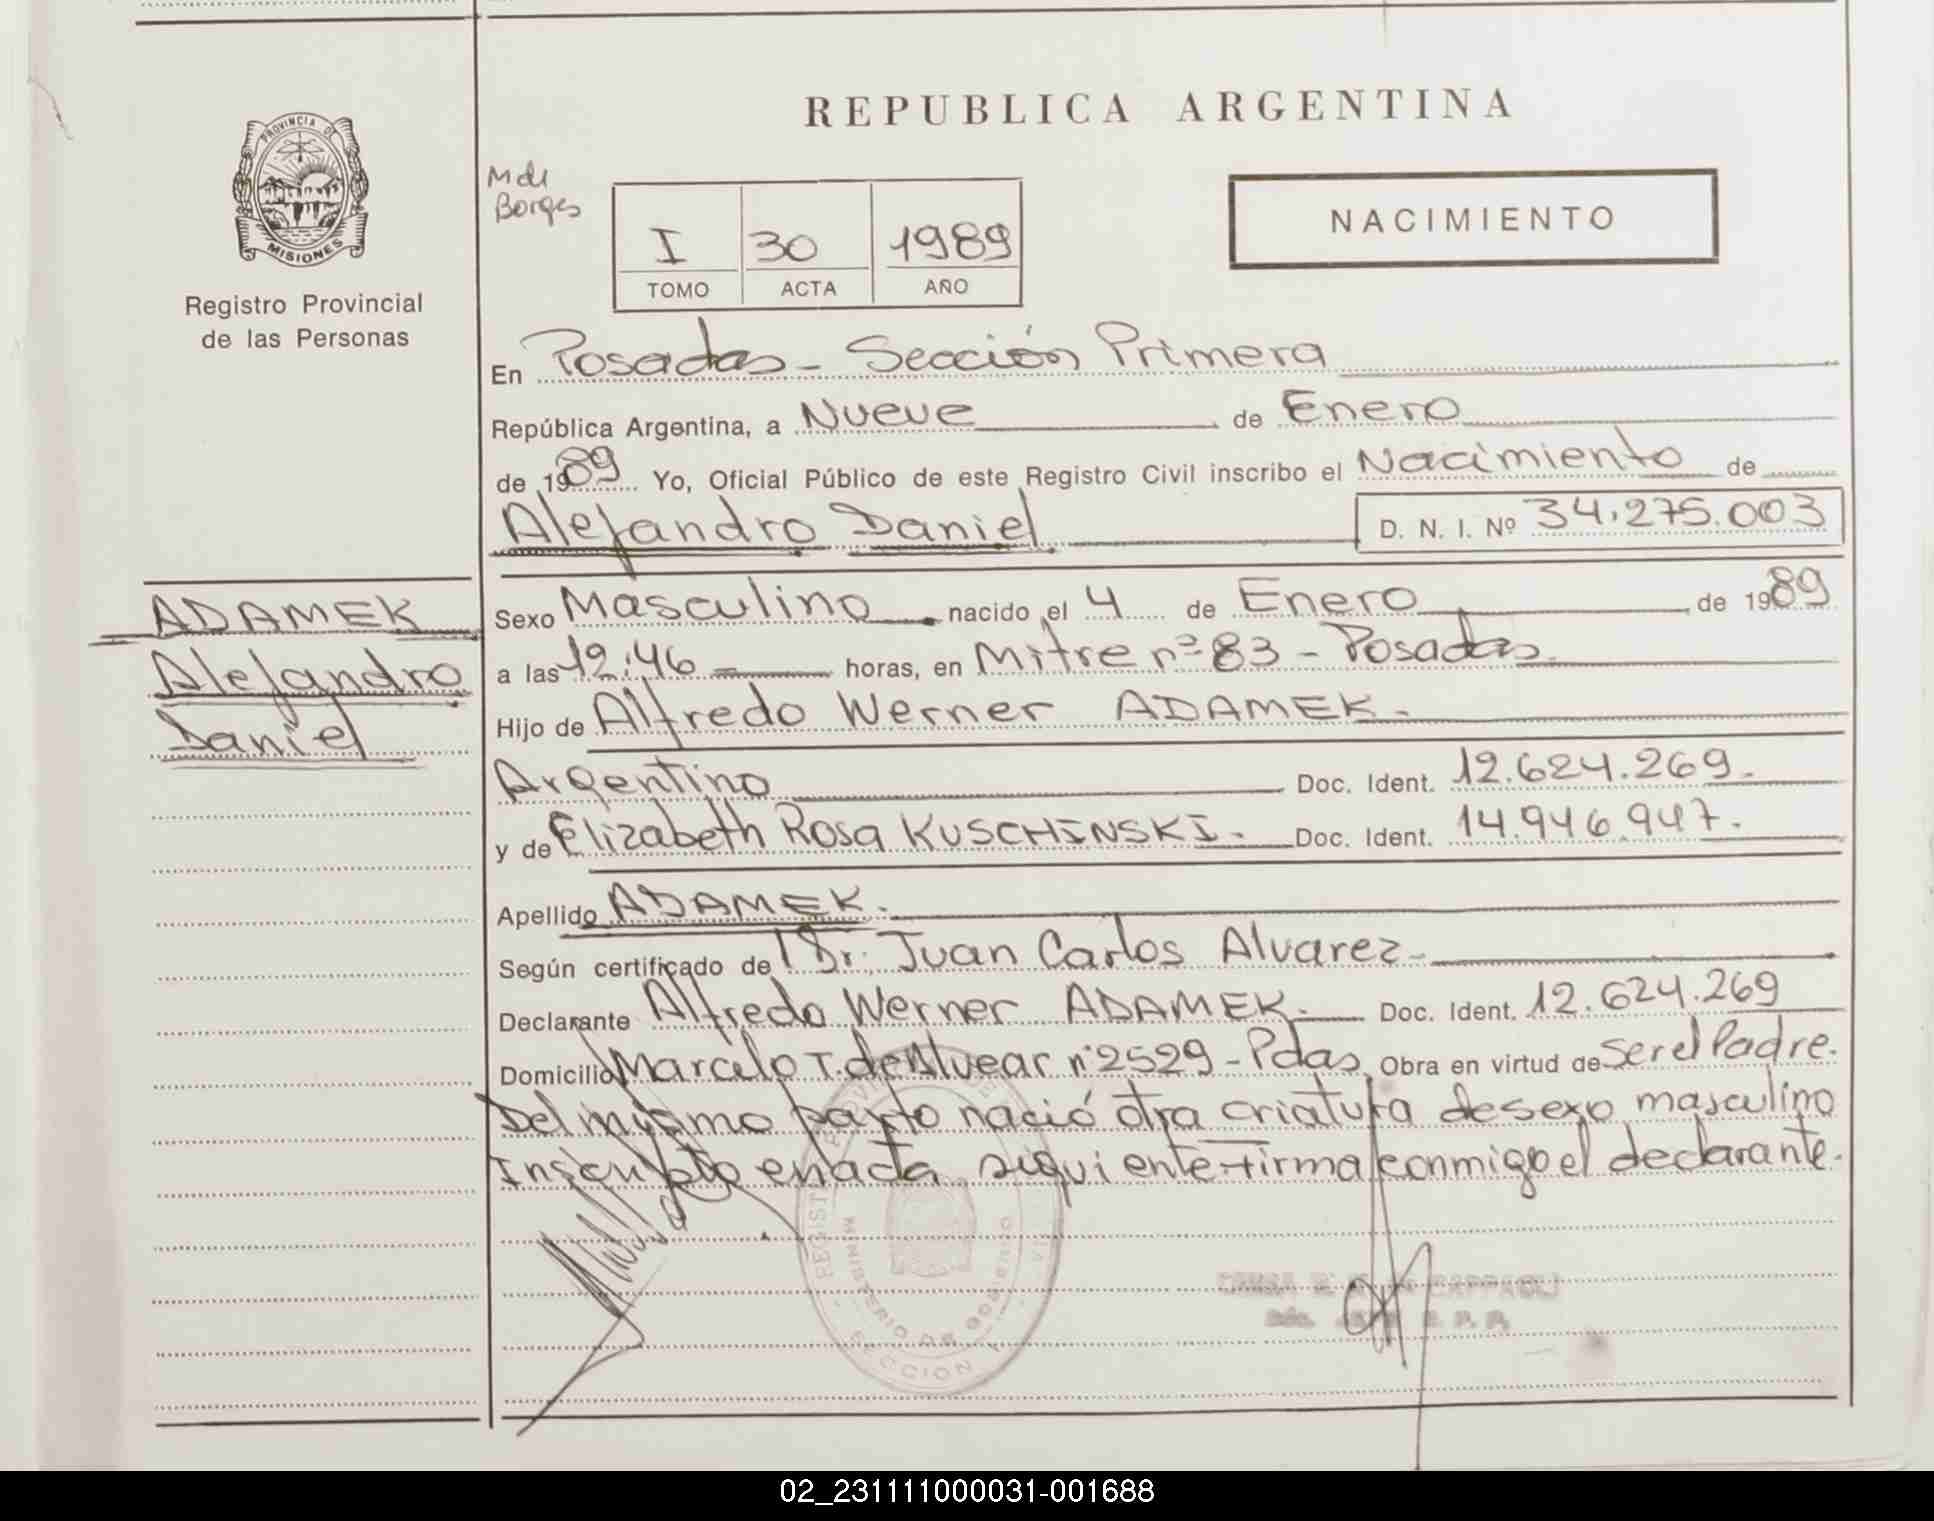 REPUBLICA ARGENTINA
PROVINCIA DE
MISIONES
Registro Provincial
de las Personas
Borges
I 30 1989
TOMO ACTA AÑO
NACIMIENTO
En Posadas - Sección Primera
República Argentina, a Nueve de Enero
de 1989 Yo, Oficial Público de este Registro Civil inscribo el Nacimiento de
Alejandro Daniel D. N. I. Nº 34.275.003
ADAMEK
Alejandro
Daniel
Sexo Masculino nacido el 4 de Enero de 1989
a las 12:46 horas, en Mitre nº 83 - Posadas.
Hijo de Alfredo Werner ADAMEK.
Argentino Doc. Ident. 12.624.269.
y de Elizabeth Rosa KUSCHINSKI. Doc. Ident. 14.946.947.
Apellido ADAMEK.
Según certificado de Dr. Juan Carlos Alvarez.
Declarante Alfredo Werner ADAMEK. Doc. Ident. 12.624.269
Domicilio Marcelo T. de Alvear nº 2529 - Pdas. Obra en virtud de ser el Padre.
Del mismo parto nació otra criatura de sexo masculino
Inscripto en acta siguiente firma conmigo el declarante.
MINISTERIO DE GOBIERNO
SECCION
02_231111000031-001688